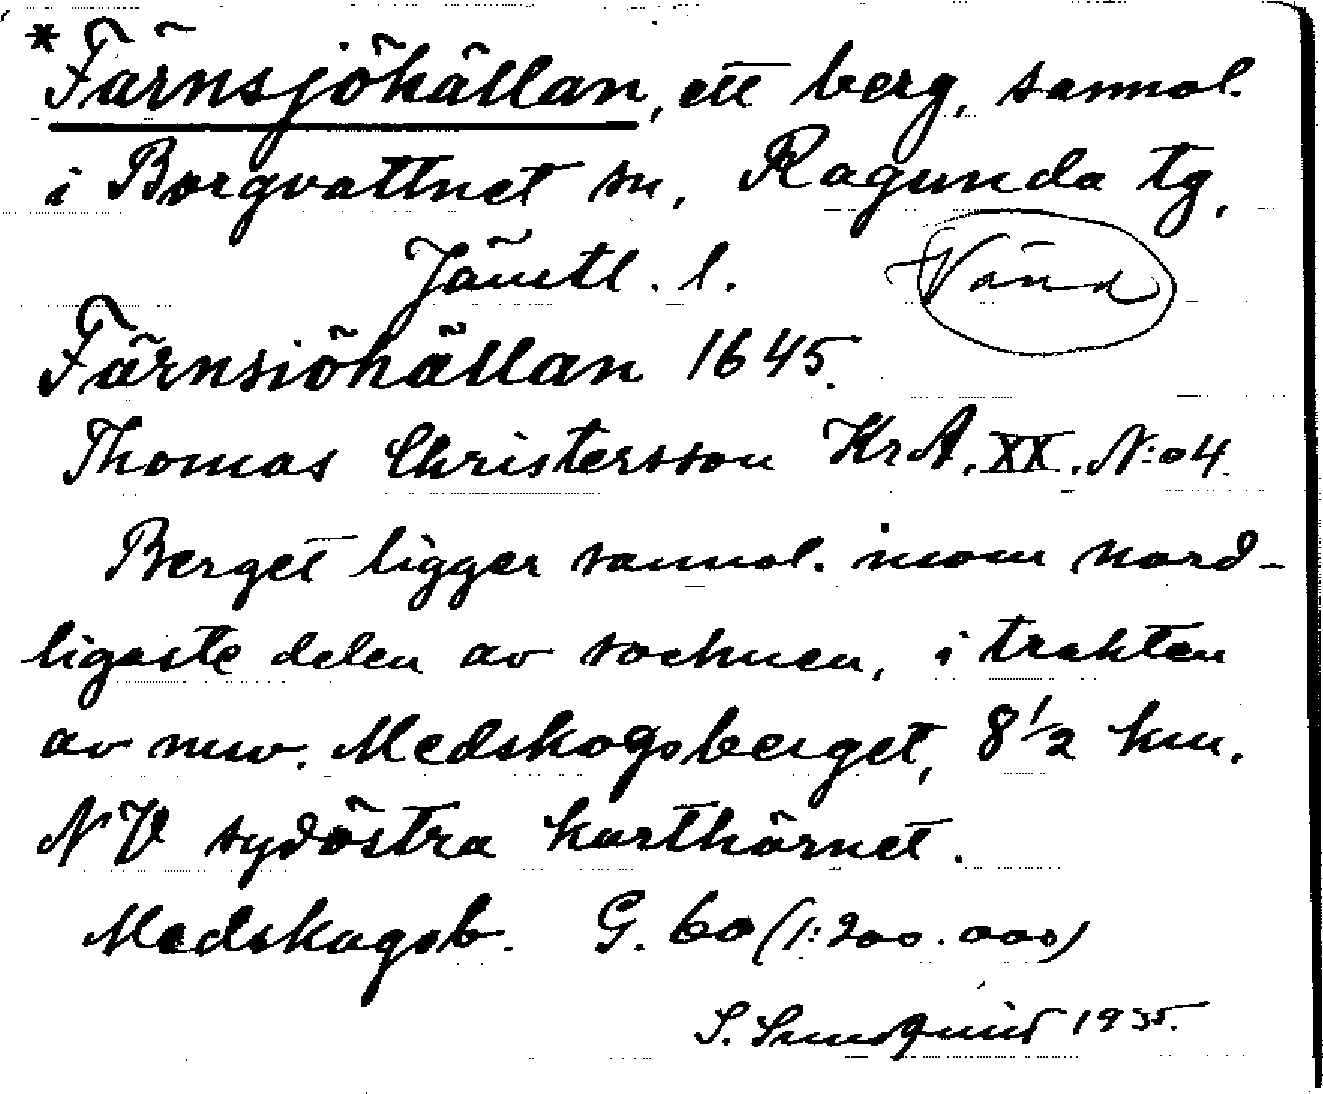 *Färnsjöhällan, ett berg, sannol.
i Borgvattnet sn, Ragunda tg,
Jämtl. l. Vänd
Färnsiöhällan 1645.
Thomas Christersson KrA. XX. N:o 4
Berget ligger sannol. inom nord-
ligaste delen av socknen, i trakten
av nuv. Medskogsberget, 8 1/2 km.
NV sydöstra karthörnet.
Medskogsb. G. 60 (1:200.000)
S. Sundquist 1935.